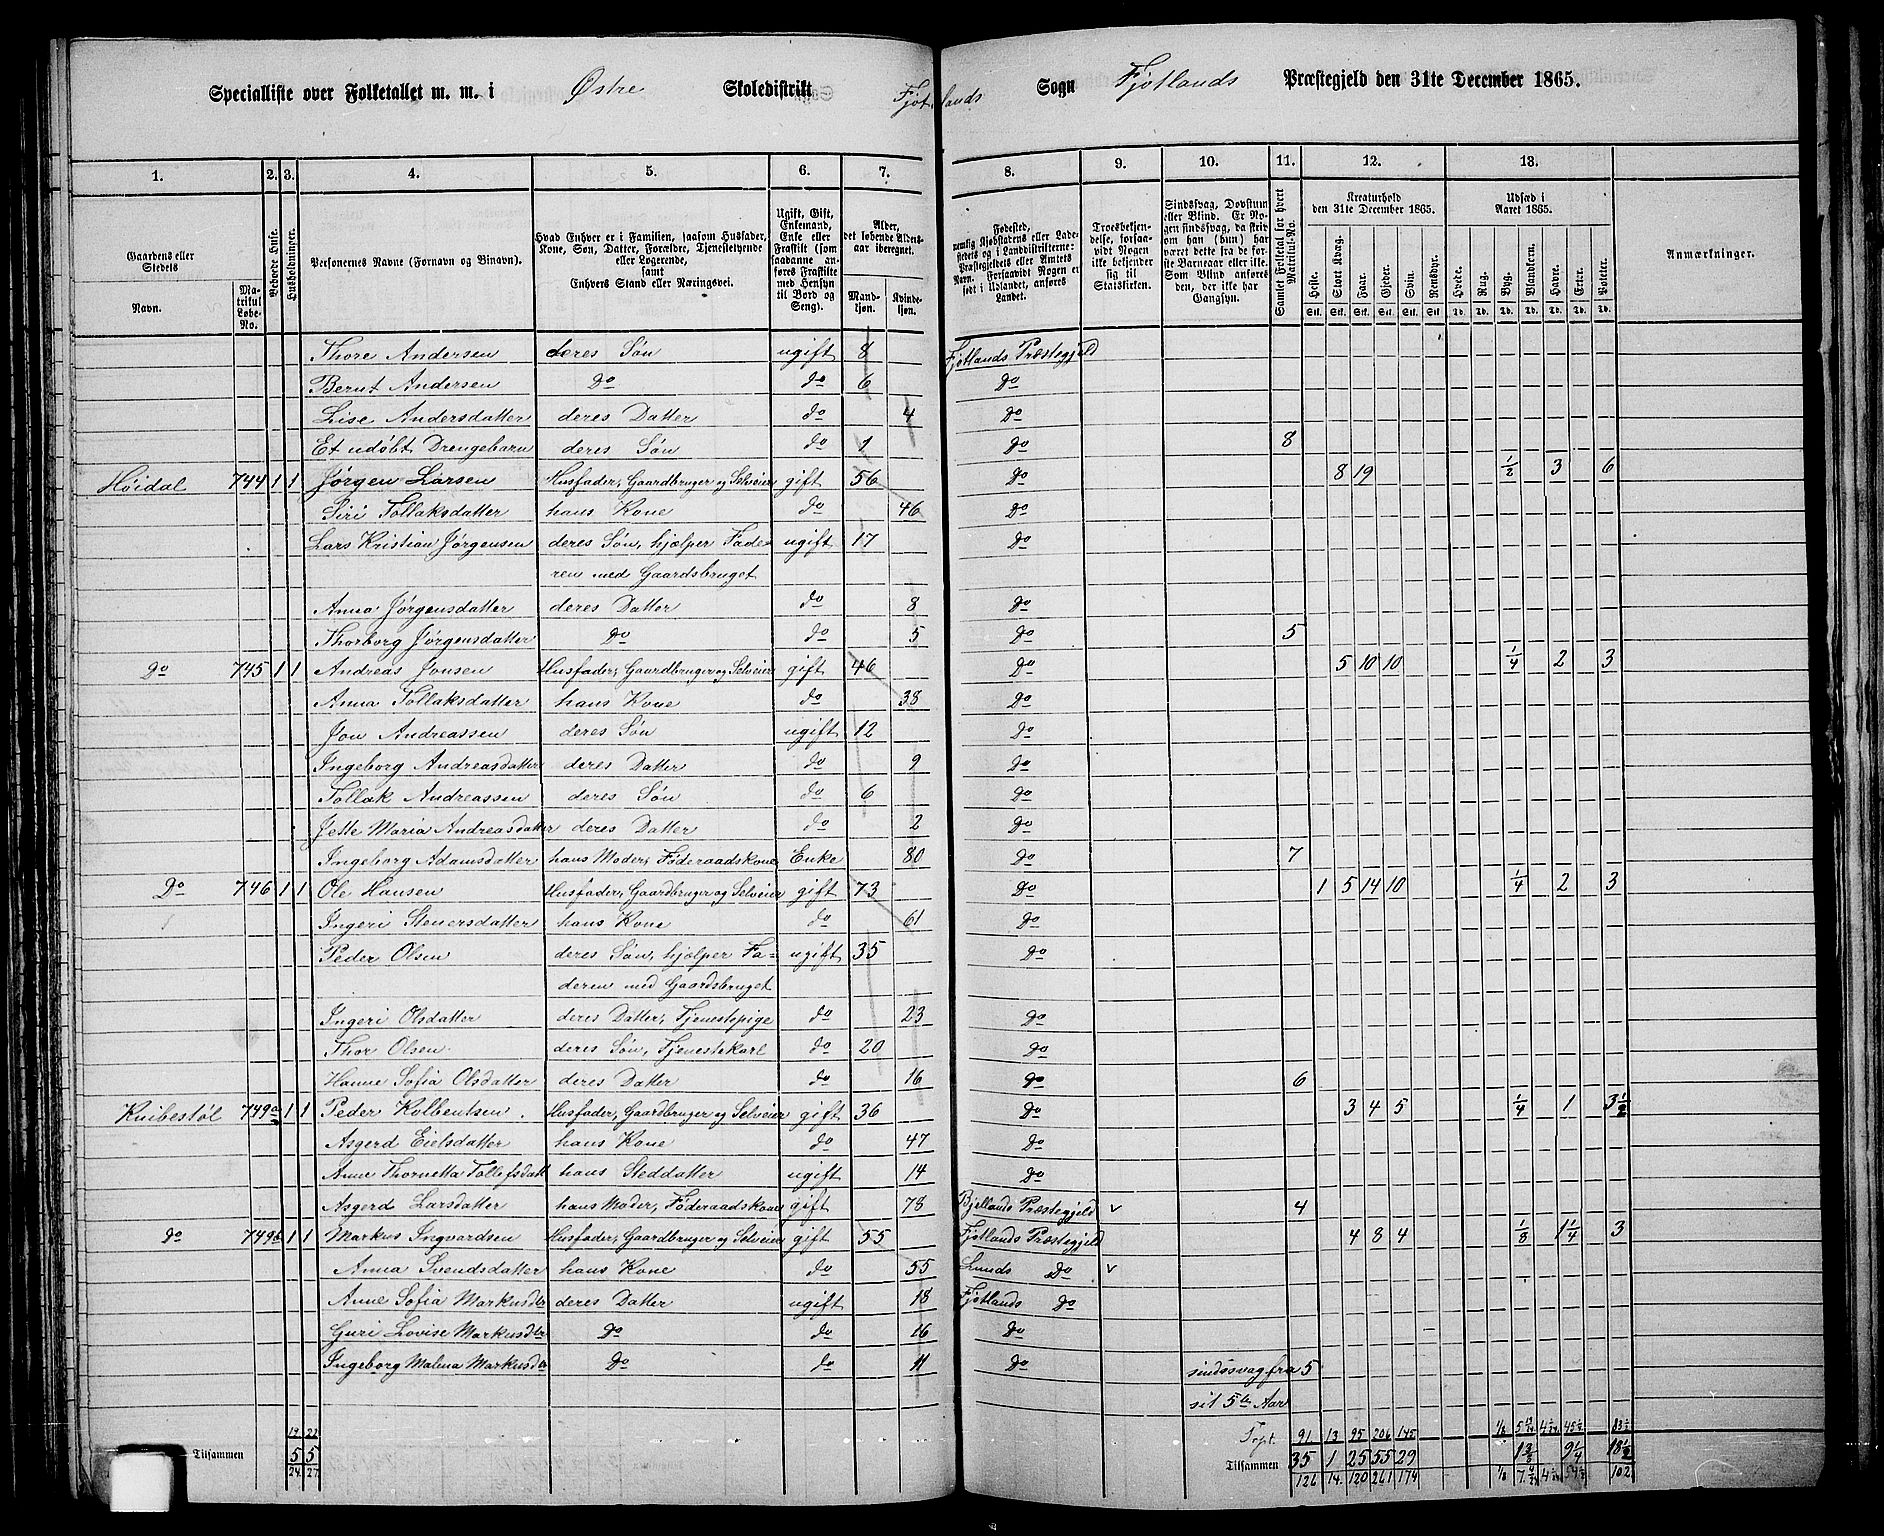 Specialliste over Folketallet m. m. i Østre Skoledistrikt Fjotlands Sogn Fjotlands Præstegjeld den 31te December 1865.
1. 2. 3. 4. 5. 6. 7. 8. 9. 10. 11. 12. 13.
Gaardens eller Stedets Navn. Matrikul Løbe-No. Beboede Huse. Husholdninger. Personernes Navne (Fornavn og Binavn). Hvad Enhver er i Familien, saasom Husfader, Kone, Søn, Datter, Forældre, Tjenestetyende eller Logerende, samt Enhvers Stand eller Næringsvei. Ugift, Gift, Enkemand, Enke eller Fraskilt (som saadanne anføres Fraskilte med Hensyn til Bord og Seng). Alder, det løbende Aldersaar iberegnet. Mandkjøn. Kvindekjøn. Fødested, nemlig Kjøbstadens eller Ladestedets og i Landdistrikterne: Præstegjeldets eller Amtets Navn. Forsaavidt Nogen er født i Udlandet, anføres Landet. Troesbekjendelse, forsaavidt Nogen ikke bekjender sig til Statskirken. Sindssvag, Døvstum eller Blind. Er Nogen sindssvag, da skrives om han (hun) har været dette fra de første Barneaar eller ikke. Som Blind anføres den, der ikke har Gangsyn. Samlet Folketal for hvert Matrikul-No. Kreaturhold den 31te December 1865. Heste. Stort Kvæg. Faar. Gjeder. Svin. Rensdyr. Udsæd i Aaret 1865. Hvede. Rug. Byg. Blandkorn. Havre. Erter. Poteter. Anmærkninger.
Thore Andersen deres Søn ugift 8 Fjotlands Præstegjeld
Bernt Andersen Do do 6 Do
Lise Andersdatter deres Datter do 4 Do
Et udøbt Drengebarn deres Søn do 1 Do 8
Høidal 744 1 1 Jørgen Larsen Husfader, Gaardbruger og Selveier gift 56 Do 8 19 1/2 3 6
Siri Tollaksdatter hans Kone do 46 Do
Lars Kristian Jørgensen deres Søn, hjælper Fade- ugift 17 Do
ren med Gaardsbruget
Anna Jørgensdatter deres Datter do 8 Do
Thorborg Jørgensdatter Do do 5 Do 5
Do 745 1 1 Andreas Jonsen Husfader, Gaardbruger og Selveier gift 46 Do 5 10 10 1/4 2 3
Anna Tollaksdatter hans Kone do 38 Do
Jon Andreassen deres Søn ugift 12 Do
Ingeborg Andreasdatter deres Datter do 9 Do
Tollak Andreassen deres Søn do 6 Do
Jette Maria Andreasdatter deres Datter do 2 Do
Ingeborg Adamsdatter hans Moder, Føderaadskone Enke 80 Do 7
Do 746 1 1 Ole Hansen Husfader, Gaardbruger og Selveier gift 73 Do 1 5 14 10 1/4 2 3
Ingeri Stenersdatter hans Kone do 61 Do
Peder Olsen deres Søn, hjælper Fa- ugift 35 Do
deren med Gaardsbruget
Ingeri Olsdatter deres Datter, Tjenestepige do 23 Do
Thor Olsen deres Søn, Tjenestekarl do 20 Do
Hanne Sofia Olsdatter deres Datter do 16 Do 6
Knibestøl 749a 1 1 Peder Kolbentsen Husfader, Gaardbruger og Selveier gift 36 Do 3 4 5 1/4 1 3 1/2
Asgerd Eielsdatter hans Kone do 47 Do
Anne Thornetta Tollefsdatt hans Steddatter ugift 14 Do
Asgerd Larsdatter hans Moder, Føderaadskone gift 78 Bjellands Præstegjeld v 4
do 749b 1 1 Markus Ingvardsen Husfader, Gaardbruger og Selveier gift 55 Fjotlands Præstegjeld 4 8 4 1/8 1 1/4 3
Anna Svendsdatter hans Kone do 55 Lunds Do v
Anne Sofia Markusdtr deres Datter ugift 18 Fjotlands Do
Guri Lovise Markusdtr Do do 16 Do
Ingeborg Malena Markusdtr Do do 11 Do sindssvag fra 5
sit 5te Aar
19 22 Tvpt. 91 13 95 206 145
Tilsammen 5 5 Tilsammen 35 1 25 55 29 1 3/8 9 1/4 18 1/2
24 27 126 14 120 261 174 102